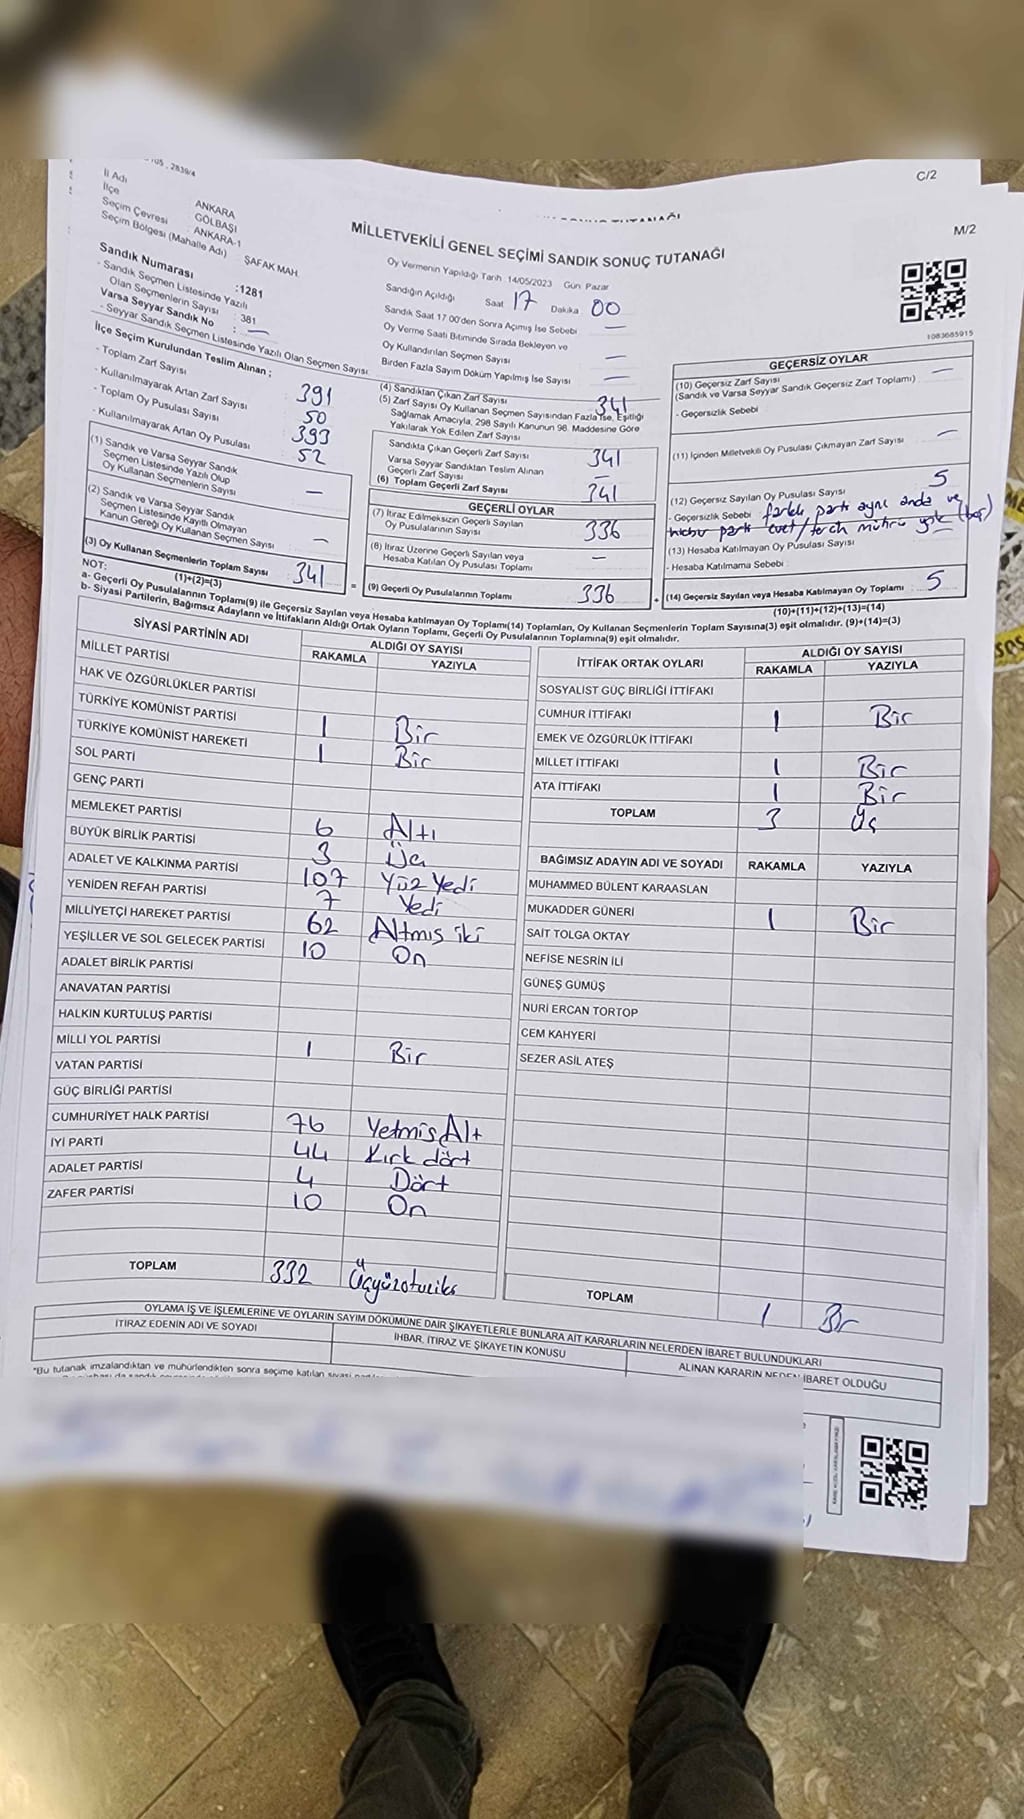 C/2
İl Adı ANKARA
İlçe GÖLBAŞI
Seçim Çevresi : ANKARA-1
Seçim Bölgesi (Mahalle Adı) : ŞAFAK MAH.
MİLLETVEKİLİ GENEL SEÇİMİ SANDIK SONUÇ TUTANAĞI
M/2
Sandık Numarası :1281
- Sandık Seçmen Listesinde Yazılı
Olan Seçmenlerin Sayısı : 381
Varsa Seyyar Sandık No : —
- Seyyar Sandık Seçmen Listesinde Yazılı Olan Seçmen Sayısı
Oy Vermenin Yapıldığı Tarih : 14/05/2023 Gün: Pazar
Sandığın Açıldığı Saat 17 Dakika 00
Sandık Saat 17.00'den Sonra Açılmış İse Sebebi —
Oy Verme Saati Bitiminde Sırada Bekleyen ve
Oy Kullandırılan Seçmen Sayısı —
Birden Fazla Sayım Döküm Yapılmış İse Sayısı —
1083685915
İlçe Seçim Kurulundan Teslim Alınan ;
- Toplam Zarf Sayısı 391
- Kullanılmayarak Artan Zarf Sayısı 50
- Toplam Oy Pusulası Sayısı 393
- Kullanılmayarak Artan Oy Pusulası 52
(1) Sandık ve Varsa Seyyar Sandık
Seçmen Listesinde Yazılı Olup
Oy Kullanan Seçmenlerin Sayısı —
(2) Sandık ve Varsa Seyyar Sandık
Seçmen Listesinde Kayıtlı Olmayan
Kanun Gereği Oy Kullanan Seçmen Sayısı —
(3) Oy Kullanan Seçmenlerin Toplam Sayısı 341
(1)+(2)=(3)
(4) Sandıktan Çıkan Zarf Sayısı 341
(5) Zarf Sayısı Oy Kullanan Seçmen Sayısından Fazla İse, Eşitliği
Sağlamak Amacıyla, 298 Sayılı Kanunun 98. Maddesine Göre
Yakılarak Yok Edilen Zarf Sayısı
Sandıkta Çıkan Geçerli Zarf Sayısı 341
Varsa Seyyar Sandıktan Teslim Alınan
Geçerli Zarf Sayısı —
(6) Toplam Geçerli Zarf Sayısı 341
GEÇERLİ OYLAR
(7) İtiraz Edilmeksizin Geçerli Sayılan
Oy Pusulalarının Sayısı 336
(8) İtiraz Üzerine Geçerli Sayılan veya
Hesaba Katılan Oy Pusulası Toplamı —
= (9) Geçerli Oy Pusulalarının Toplamı 336
GEÇERSİZ OYLAR
(10) Geçersiz Zarf Sayısı —
(Sandık ve Varsa Seyyar Sandık Geçersiz Zarf Toplamı)
- Geçersizlik Sebebi
(11) İçinden Milletvekili Oy Pusulası Çıkmayan Zarf Sayısı —
(12) Geçersiz Sayılan Oy Pusulası Sayısı 5
- Geçersizlik Sebebi farklı parti aynı anda ve
hiçbir parti evet/tercih mührü yok (boş)
(13) Hesaba Katılmayan Oy Pusulası Sayısı —
- Hesaba Katılmama Sebebi :
+ (14) Geçersiz Sayılan veya Hesaba Katılmayan Oy Toplamı : 5
(10)+(11)+(12)+(13)=(14)
NOT:
a- Geçerli Oy Pusulalarının Toplamı(9) ile Geçersiz Sayılan veya Hesaba katılmayan Oy Toplamı(14) Toplamları, Oy Kullanan Seçmenlerin Toplam Sayısına(3) eşit olmalıdır. (9)+(14)=(3)
b- Siyasi Partilerin, Bağımsız Adayların ve İttifakların Aldığı Ortak Oyların Toplamı, Geçerli Oy Pusulalarının Toplamına(9) eşit olmalıdır.
SİYASİ PARTİNİN ADI ALDIĞI OY SAYISI
RAKAMLA YAZIYLA
MİLLET PARTİSİ
HAK VE ÖZGÜRLÜKLER PARTİSİ
TÜRKİYE KOMÜNİST PARTİSİ 1 Bir
TÜRKİYE KOMÜNİST HAREKETİ 1 Bir
SOL PARTİ
GENÇ PARTİ
MEMLEKET PARTİSİ 6 Altı
BÜYÜK BİRLİK PARTİSİ 3 Üç
ADALET VE KALKINMA PARTİSİ 107 Yüz Yedi
YENİDEN REFAH PARTİSİ 7 Yedi
MİLLİYETÇİ HAREKET PARTİSİ 62 Altmış iki
YEŞİLLER VE SOL GELECEK PARTİSİ 10 On
ADALET BİRLİK PARTİSİ
ANAVATAN PARTİSİ
HALKIN KURTULUŞ PARTİSİ
MİLLİ YOL PARTİSİ 1 Bir
VATAN PARTİSİ
GÜÇ BİRLİĞİ PARTİSİ
CUMHURİYET HALK PARTİSİ 76 Yetmiş Altı
İYİ PARTİ 44 Kırk dört
ADALET PARTİSİ 4 Dört
ZAFER PARTİSİ 10 On
TOPLAM 332 Üçyüzotuziki
İTTİFAK ORTAK OYLARI ALDIĞI OY SAYISI
RAKAMLA YAZIYLA
SOSYALİST GÜÇ BİRLİĞİ İTTİFAKI
CUMHUR İTTİFAKI 1 Bir
EMEK VE ÖZGÜRLÜK İTTİFAKI
MİLLET İTTİFAKI 1 Bir
ATA İTTİFAKI 1 Bir
TOPLAM 3 Üç
BAĞIMSIZ ADAYIN ADI VE SOYADI RAKAMLA YAZIYLA
MUHAMMED BÜLENT KARAASLAN
MUKADDER GÜNERİ 1 Bir
SAİT TOLGA OKTAY
NEFİSE NESRİN İLİ
GÜNEŞ GÜMÜŞ
NURİ ERCAN TORTOP
CEM KAHYERİ
SEZER ASİL ATEŞ
TOPLAM 1 Bir
OYLAMA İŞ VE İŞLEMLERİNE VE OYLARIN SAYIM DÖKÜMÜNE DAİR ŞİKAYETLERLE BUNLARA AİT KARARLARIN NELERDEN İBARET BULUNDUKLARI
İTİRAZ EDENİN ADI VE SOYADI İHBAR, İTİRAZ VE ŞİKAYETİN KONUSU ALINAN KARARIN NEDEN İBARET OLDUĞU
*Bu tutanak imzalandıktan ve mühürlendikten sonra seçime katılan siyasi